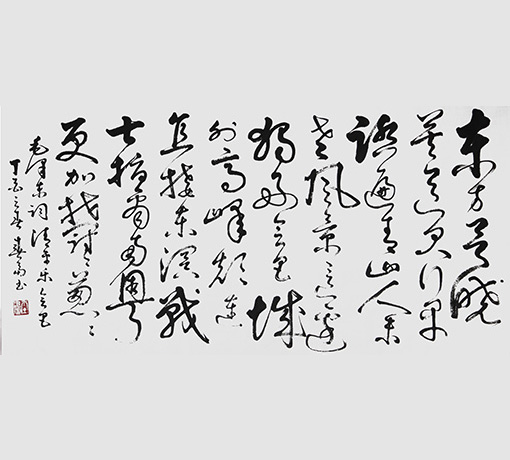 东方欲晓
莫道君行早
踏遍青山人未
老风景这边
独好会昌城
外高峰颠连
直接东溟战
士指看南粤
更加郁々葱々
毛泽东词清平乐会昌
丁酉之书